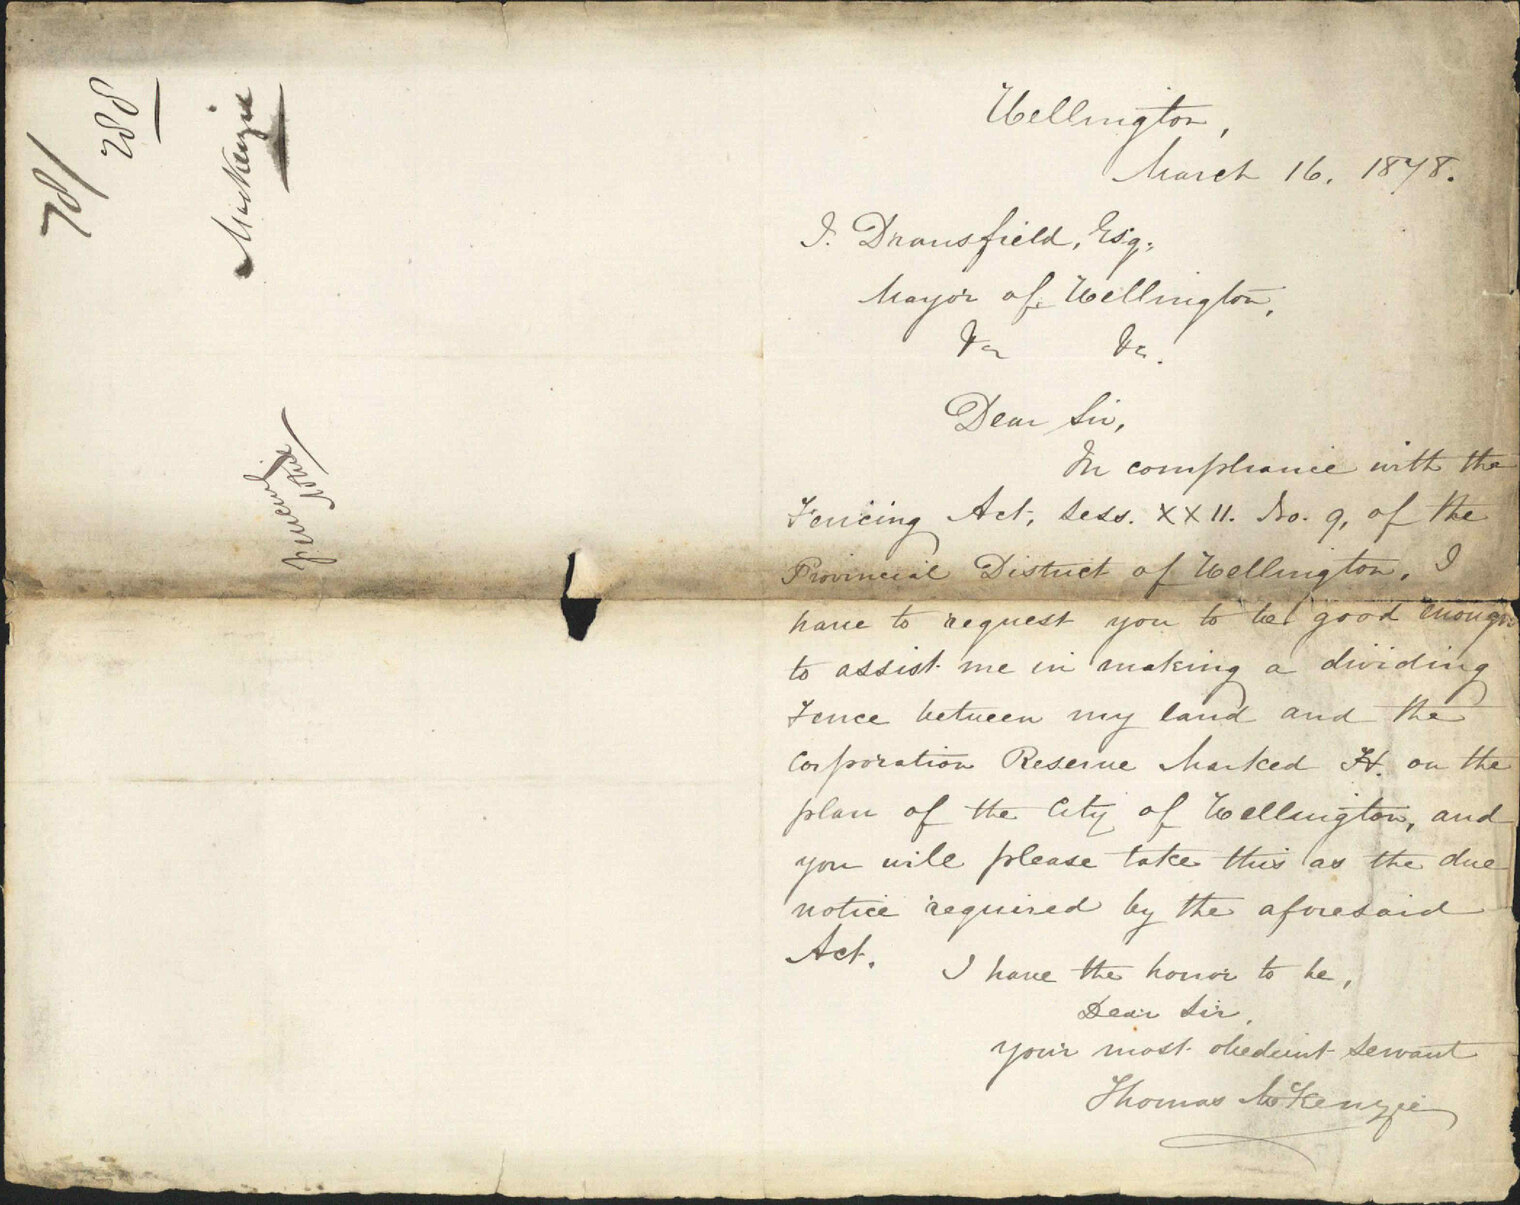 78/
288
Mackenzie
Fencing
Notice
Wellington,
March 16. 1878.
J. Dransfield, Esq.
Mayor of Wellington,
&c &c.
Dear Sir,
In compliance with the
Fencing Act, Sess. XXII. No. 9, of the
Provincial District of Wellington, I
have to request you to be good enough
to assist me in making a dividing
Fence between my land and the
Corporation Reserve Marked H. on the
plan of the City of Wellington, and
you will please take this as the due
notice required by the aforesaid
Act.
I have the honor to be,
Dear Sir,
your most obedient Servant
Thomas McKenzie